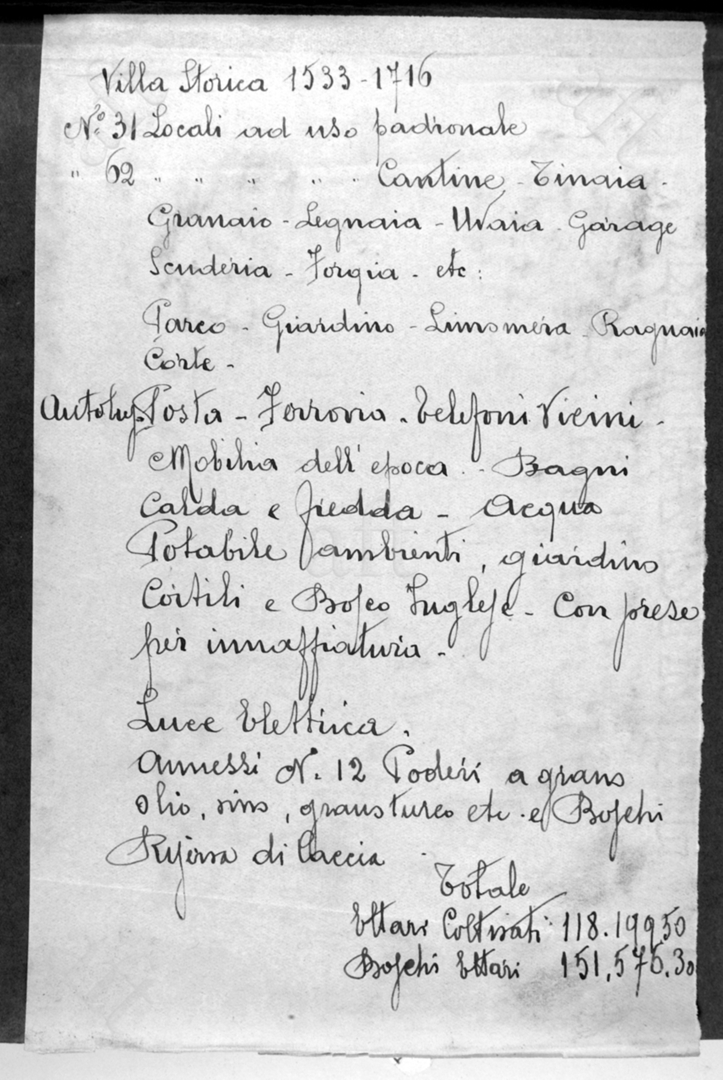 Villa Storica 1533-1716
N.º 31 Locali ad uso padronale
" 62 " " " " " Cantine - Tinaia -
Granaio - Legnaia - Uvaia - Garage
Scuderia - Forgia - etc:
Parco - Giardino - Limonaia - Ragnaia
Corte -
Posta - Ferrovia - Telefoni Vicini -
Mobilia dell'epoca - Bagni
Calda e fredda - Acqua
Potabile ambienti, giardino
Cortili e Bosco Inglese - Con prese
per innaffiatura -
Luce Elettrica.
Annessi N. 12 Poderi a grano
olio, vino, granoturco etc. e Boschi
Riserva di Caccia
Totale
Ettari Coltivati 118.199,50
Boschi Ettari 151,575.30